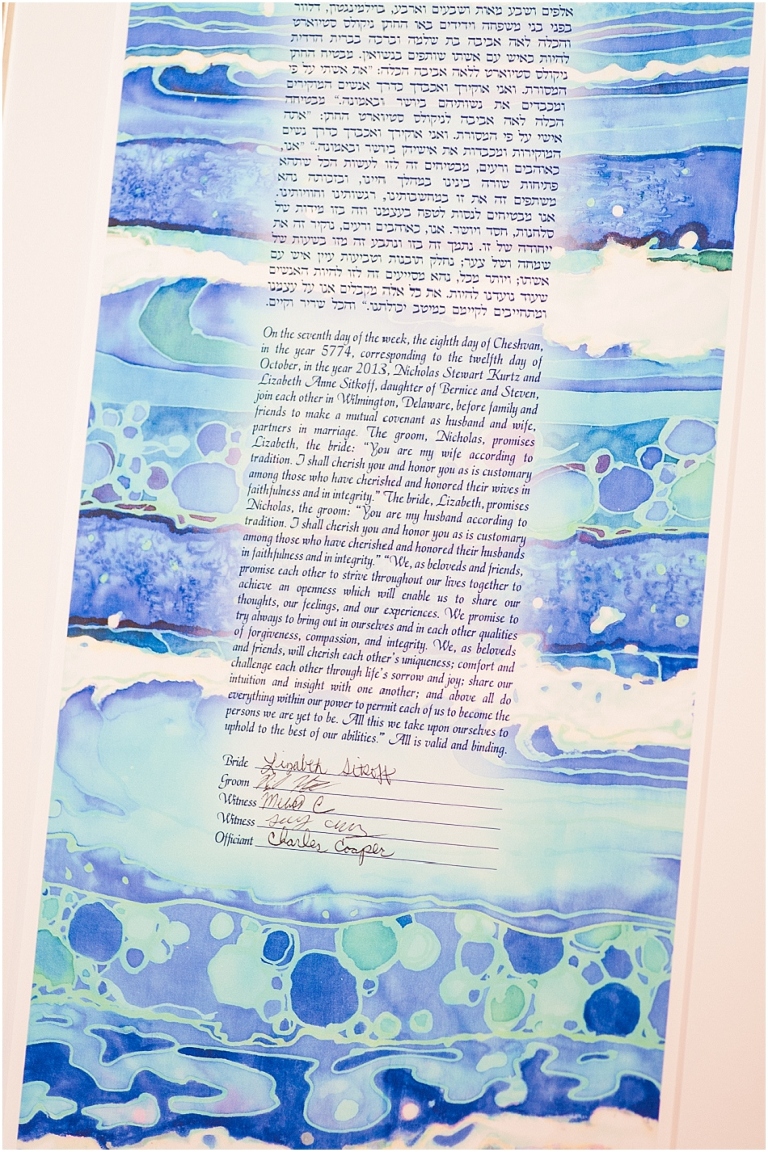 אלפים ושבע מאות ושבעים וארבע, בוילמינגטון, דלוור
בפני בני משפחה וידידים באו החתן ניקולס סטיוארט
והכלה לאה אביבה בת שלמה וברכה בברית הדדית
להיות כאיש עם אשתו שותפים בנשואין. מבטיח החתן
ניקולס סטיוארט ללאה אביבה הכלה: "את אשתי על פי
המסורת. ואני אוקירך ואכבדך כדרך אנשים המוקירים
ומכבדים את נשותיהם ביושר ובאמונה." מבטיחה
הכלה לאה אביבה לניקולס סטיוארט החתן: "אתה
אישי על פי המסורת. ואני אוקירך ואכבדך כדרך נשים
המוקירות ומכבדות את אישיהן ביושר ובאמונה." "אנו,
כאוהבים ורעים, מבטיחים זה לזו לעשות הכל שתהא
פתיחות שורה בינינו במהלך חיינו, ובזכותה נהא
משתפים זה את זו במחשבותינו, רגשותינו וחוויותינו.
אנו מבטיחים לנסות לטפח בעצמנו וזה בזו מידות של
סלחנות, חסד ויושר. אנו, כאוהבים ורעים, נוקיר זה את
יחודה של זו. נתמך זה בזו ונתבע זה מזו בשעות של
שמחה ושל צער; נחלק תובנות וטביעות עין איש עם
אשתו; ויותר מכל, נהא מסייעים זה לזו להיות האנשים
שיעוד נועדנו להיות. את כל אלה מקבלים אנו על עצמנו
ומתחייבים לקיימם כמיטב יכולתנו." והכל שריר וקיים.
On the seventh day of the week, the eighth day of Cheshvan,
in the year 5774, corresponding to the twelfth day of
October, in the year 2013, Nicholas Stewart Kurtz and
Lizabeth Anne Sitkoff, daughter of Bernice and Steven,
join each other in Wilmington, Delaware, before family and
friends to make a mutual covenant as husband and wife,
partners in marriage. The groom, Nicholas, promises
Lizabeth, the bride: “You are my wife according to
tradition. I shall cherish you and honor you as is customary
among those who have cherished and honored their wives in
faithfulness and in integrity.” The bride, Lizabeth, promises
Nicholas, the groom: “You are my husband according to
tradition. I shall cherish you and honor you as is customary
among those who have cherished and honored their husbands
in faithfulness and in integrity.” “We, as beloveds and friends,
promise each other to strive throughout our lives together to
achieve an openness which will enable us to share our
thoughts, our feelings, and our experiences. We promise to
try always to bring out in ourselves and in each other qualities
of forgiveness, compassion, and integrity. We, as beloveds
and friends, will cherish each other’s uniqueness; comfort and
challenge each other through life’s sorrow and joy; share our
intuition and insight with one another; and above all do
everything within our power to permit each of us to become the
persons we are yet to be. All this we take upon ourselves to
uphold to the best of our abilities.” All is valid and binding.
Bride Lizabeth Sitkoff
Groom
Witness
Witness
Officiant Charles Cooper